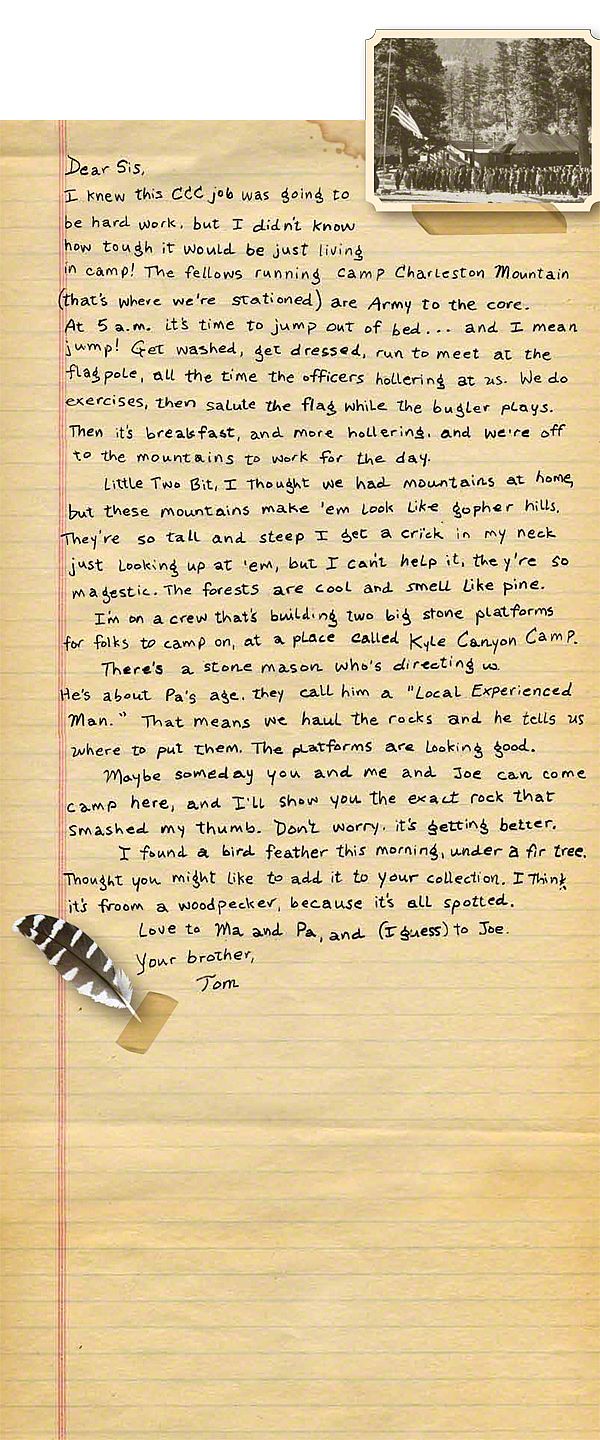 Dear Sis,
I knew this CCC job was going to
be hard work, but I didn't know
how tough it would be just living
in camp! The fellows running camp Charleston Mountain
(that's where we're stationed) are Army to the core.
At 5 a.m. it's time to jump out of bed... and I mean
jump! Get washed, get dressed, run to meet at the
flagpole, all the time the officers hollering at us. We do
exercises, then salute the flag while the bugler plays.
Then it's breakfast, and more hollering, and we're off
to the mountains to work for the day.
Little Two Bit, I thought we had mountains at home,
but these mountains make 'em look like gopher hills.
They're so tall and steep I get a crick in my neck
just looking up at 'em, but I can't help it, they're so
magestic. The forests are cool and smell like pine.
I'm on a crew that's building two big stone platforms
for folks to camp on, at a place called Kyle Canyon Camp.
There's a stone mason who's directing us.
He's about Pa's age, they call him a "Local Experienced
Man." That means we haul the rocks and he tells us
where to put them. The platforms are looking good.
Maybe someday you and me and Joe can come
camp here, and I'll show you the exact rock that
smashed my thumb. Don't worry, it's getting better.
I found a bird feather this morning, under a fir tree.
Thought you might like to add it to your collection. I think
it's froom a woodpecker, because it's all spotted.
Love to Ma and Pa, and (I guess) to Joe.
Your brother,
Tom